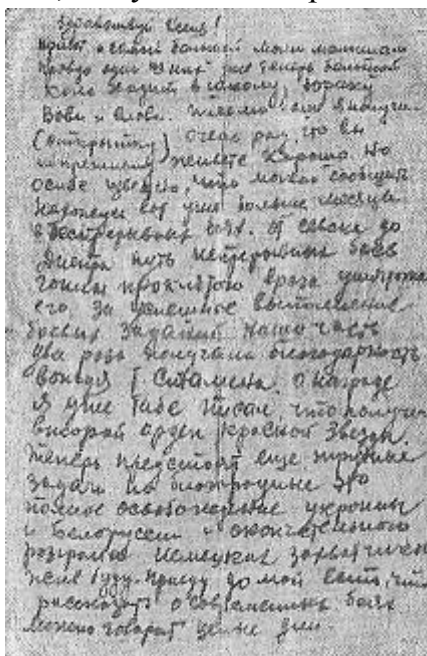 Здравствуй Ксеня!
Привет и самый большой моим малышам
Правда один из них уже теперь большой
коль ходит в школу,
Вове и Письмо твое я получил
(открытку) очень рад, что вы
по прежнему живете хорошо. Но
о себе что могу сообщить
Нахожусь вот уже больше месяца
в беспрерывных боях. от Севска до
Днепра путь непрерывных боев
гоним проклятого врага уничтожая
его. За успешное выполнение
боевых заданий наша часть
два раза получала благодарность
вождя т. Сталина. О награде
я уже тебе писал, что получил
второй орден Красной Звезды.
Теперь предстоят еще трудные
задачи но благородные это
полное освобождение украины
и Белоруссии и окончательного
розгрома немецких захватчиков
Жене буду приеду домой есть, что
рассказать о современных боях
можно говорить целые дни.